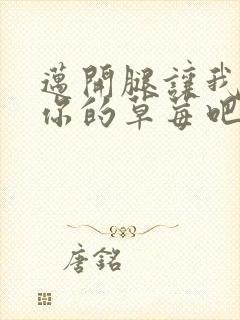 邁開腿讓我
你的草莓吧
唐銘